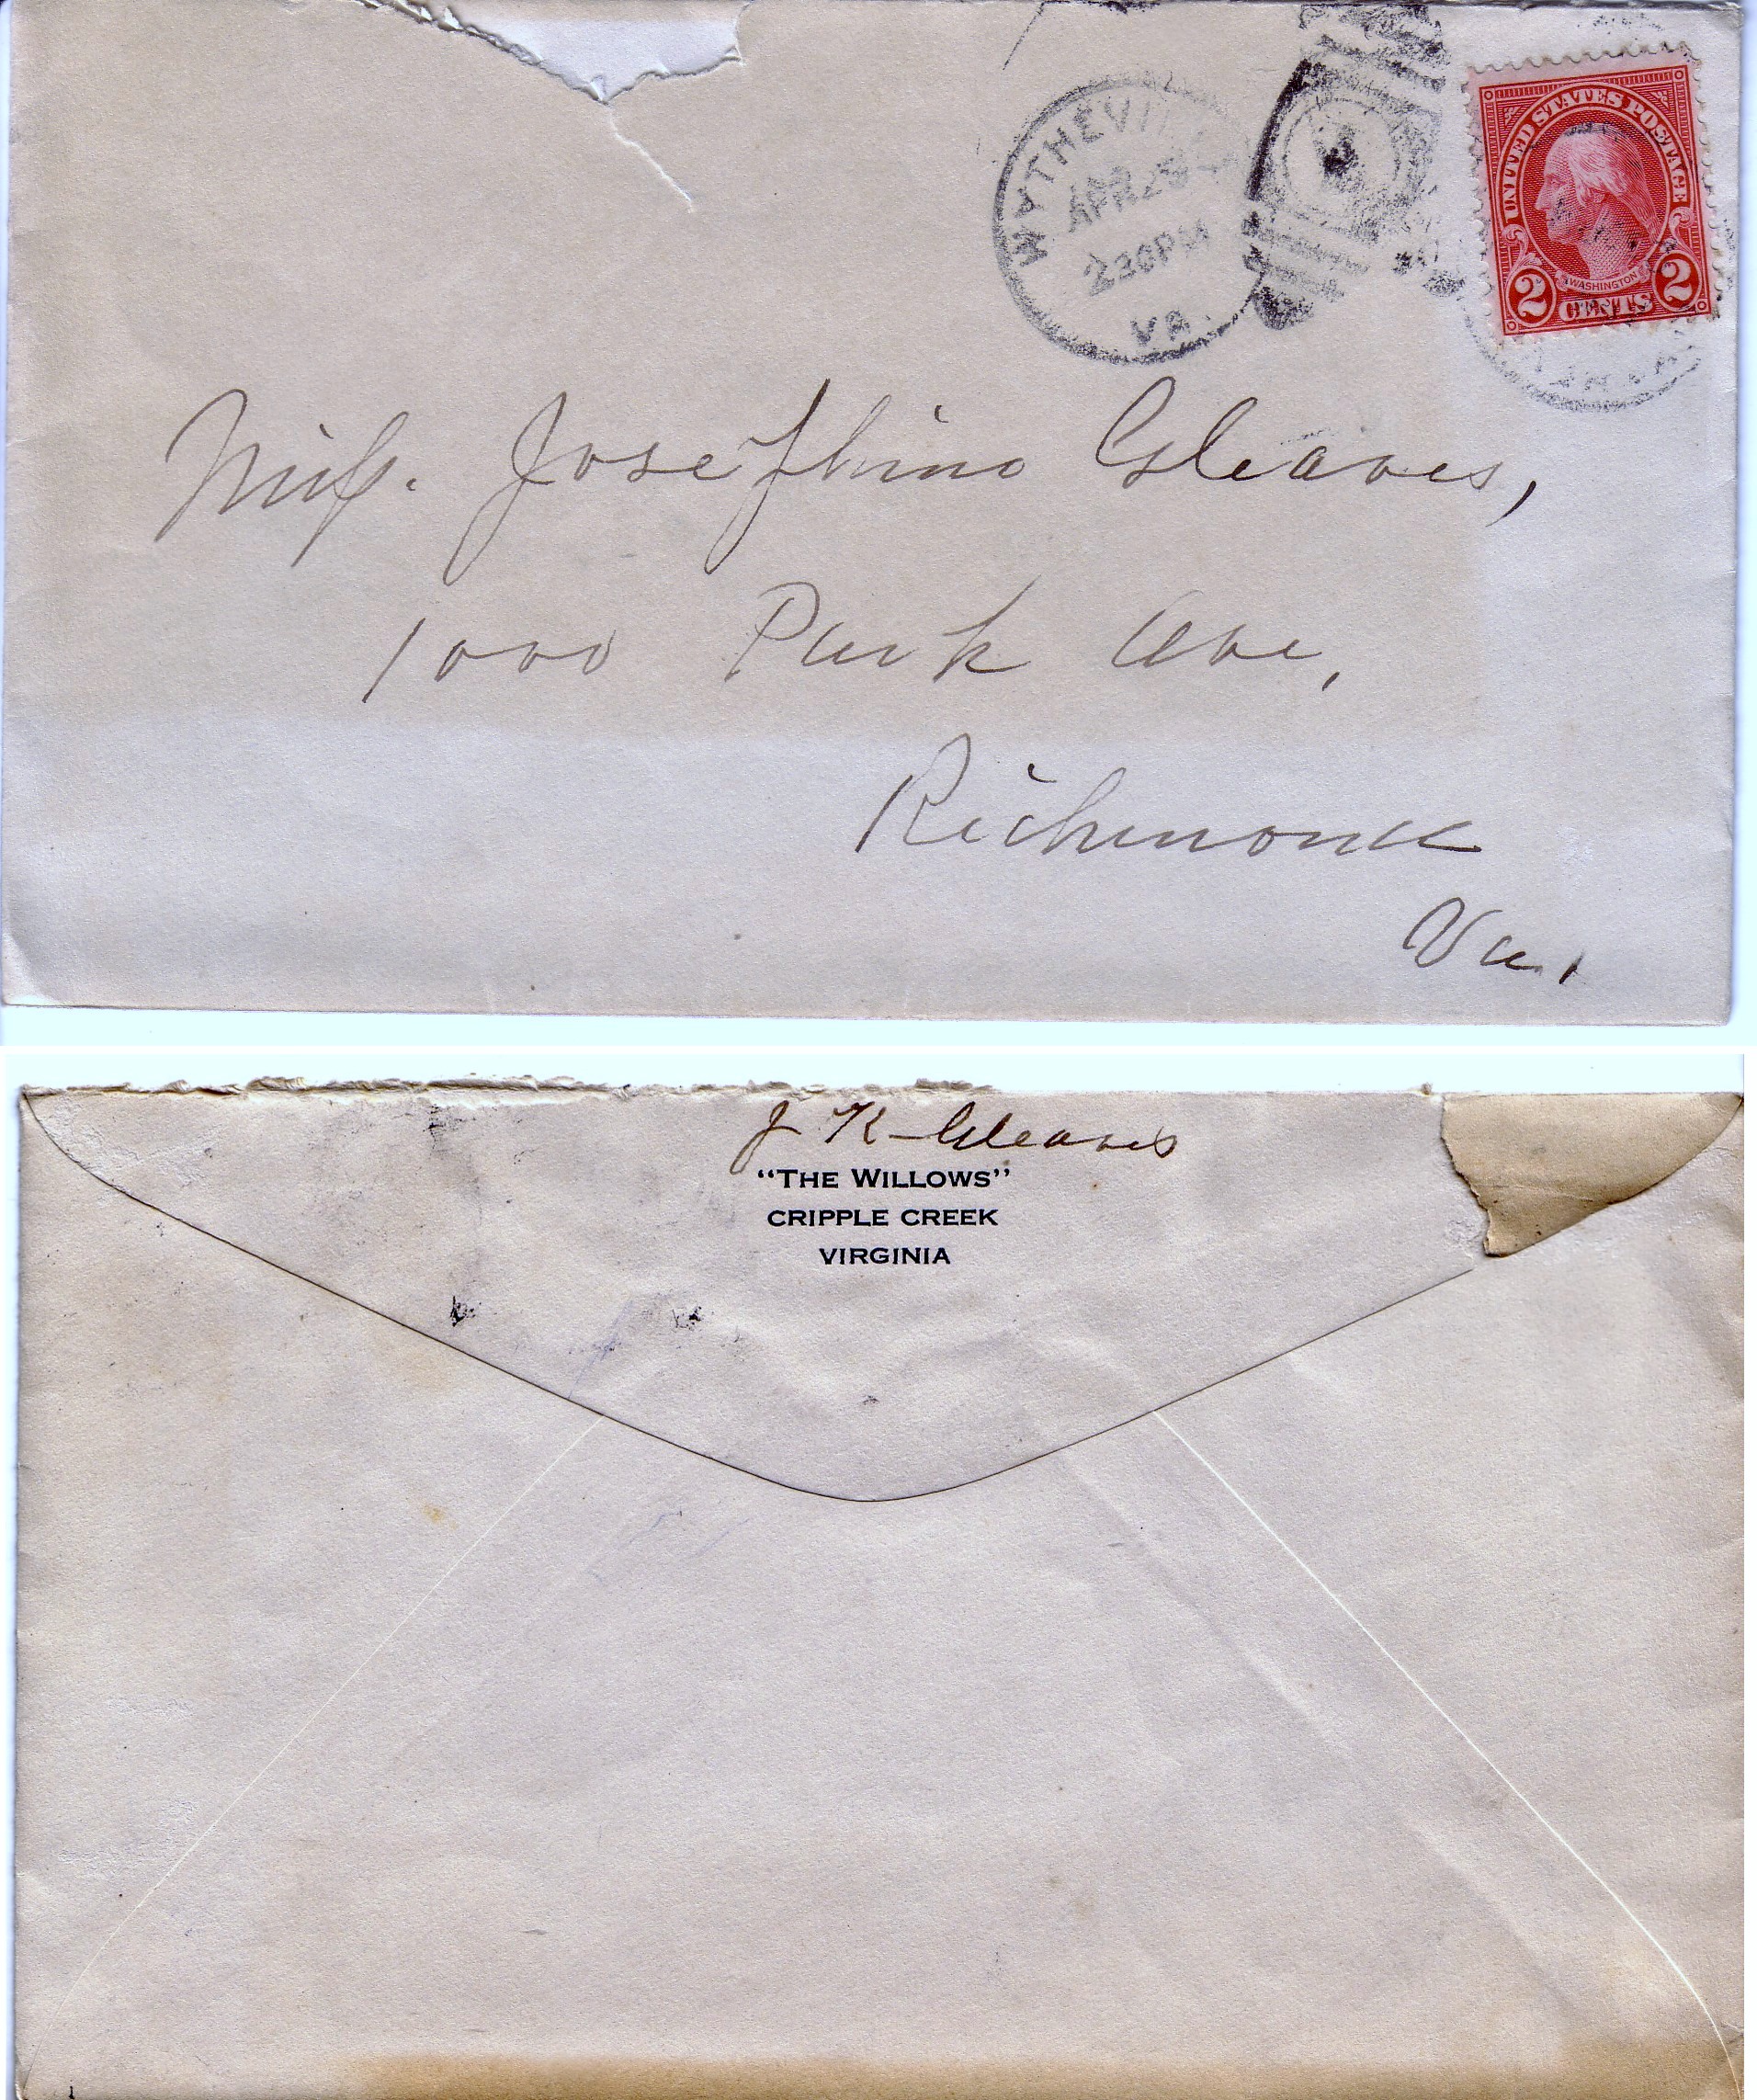 WYTHEVILLE
APR 25
230PM
VA.
UNITED STATES POSTAGE
WASHINGTON
2 CENTS 2
Miss. Josephine Gleaves,
1000 Park Ave,
Richmond
Va.,
J K Gleaves
"THE WILLOWS"
CRIPPLE CREEK
VIRGINIA